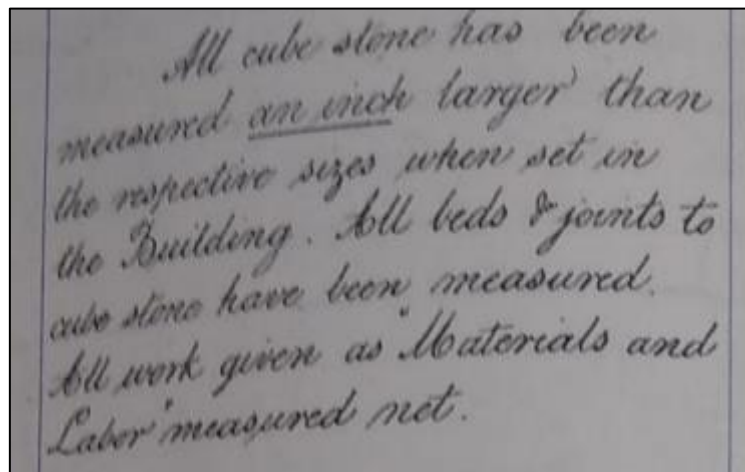 All cube stone has been
measured an inch larger than
the respective sizes when set in
the Building. All beds & joints to
cube stone have been measured.
All work given as "Materials and
Labor" measured net.